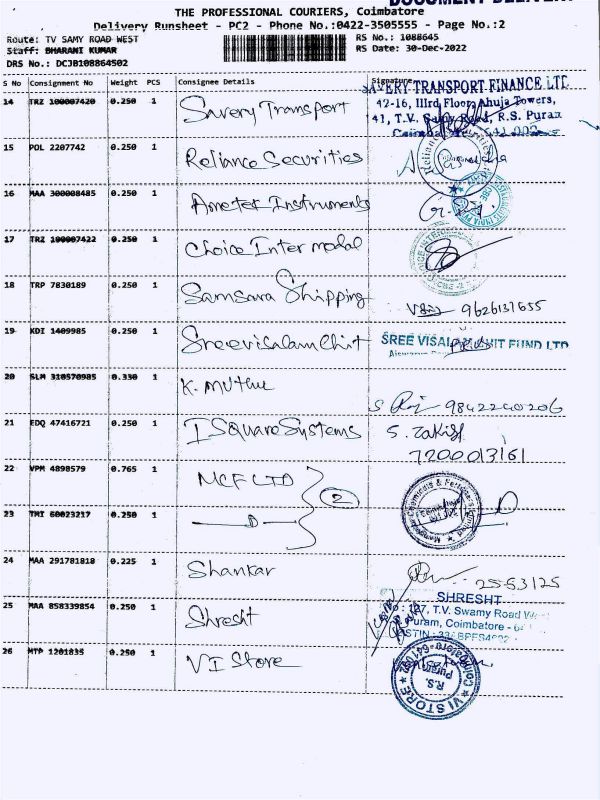 THE PROFESSIONAL COURIERS, Coimbatore
Delivery Runsheet - PC2 - Phone No.:0422-3505555 - Page No.:2
Route: TV SAMY ROAD WEST
RS No.: 1088645
Staff: BHARANI KUMAR
RS Date: 30-Dec-2022
DRS No.: DCJB108864502
S No Consignment No Weight PCS Consignee Details Signature
SAVERY TRANSPORT FINANCE LTD
14 TRZ 100007420 0.250 1 Savery Transport
42-16, IIIrd Floor, Ahuja Towers,
41, T.V. Samy Road, R.S. Puram
15 POL 2207742 0.250 1 Reliance Securities
16 MAA 300008485 0.250 1 Ameter Instruments
17 TRZ 100007422 0.250 1 Choice Inter modal
18 TRP 7830189 0.250 1 Samsara Shipping
9626137655
19 KDI 1409985 0.250 1 Sreevisalam Chit
SREE VISALAM CHIT FUND LTD
20 SLM 310570985 0.330 1 K. Muthu
9842240206
21 EDQ 47416721 0.250 1 I Square Systems S. Zakir
7200013161
22 VPM 4898579 0.765 1 MCF LTD
2
23 TMI 60023217 0.250 1 D
24 MAA 291781818 0.225 1 Shankar
2553125
25 MAA 858339854 0.250 1 Shresht
SHRESHT
127, T.V. Swamy Road
Puram, Coimbatore
26 MTP 1201835 0.250 1 VI Store
Coimbatore-641 002
R.S. Puram
VI STORE